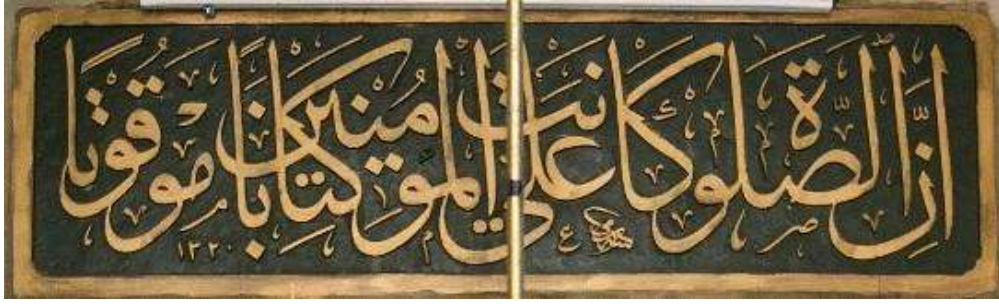 إن الصلوة كانت على المؤمنين كتابا موقوتا
١٣٢٠